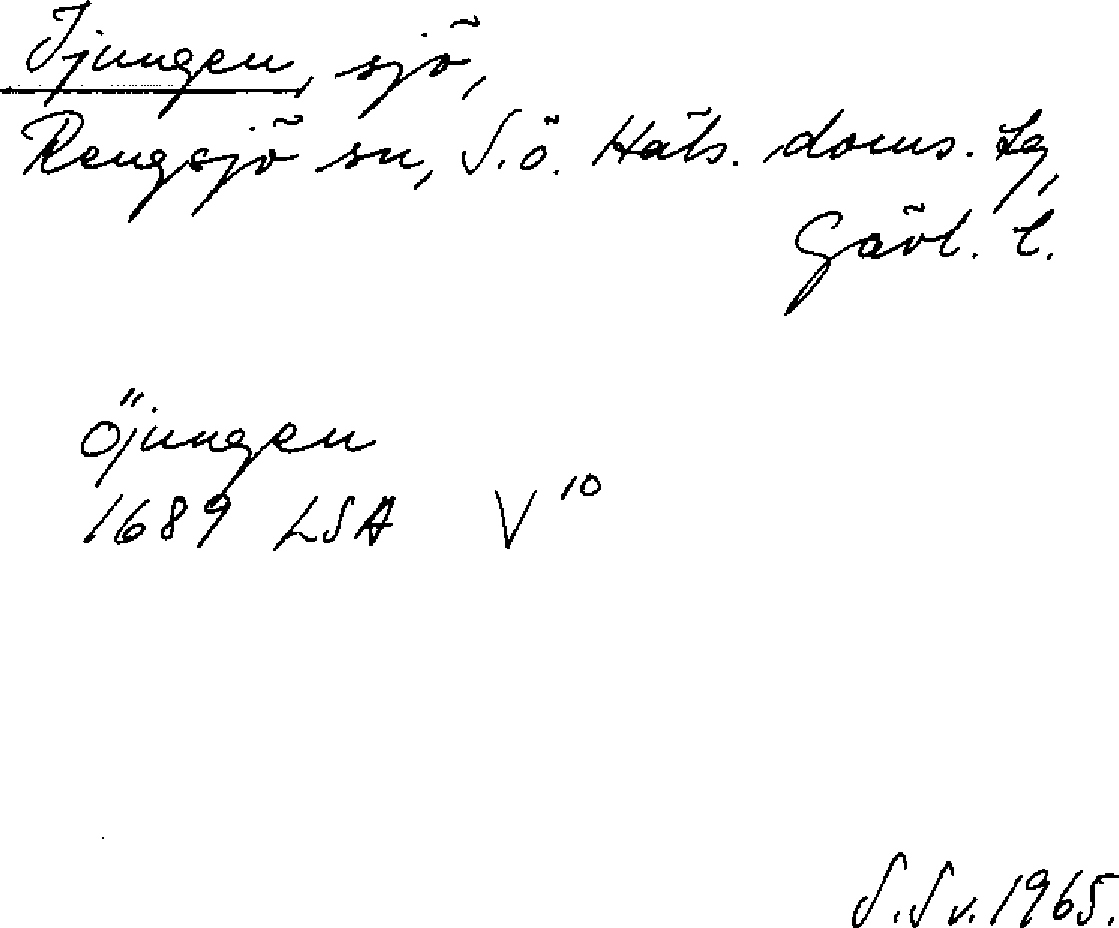 Ijungen, sjö,
Rengsjö sn, S.ö. Häls. doms. tg,
Gävl. l.
Öjungen
1689 LSA V 10
S. Sv. 1965.